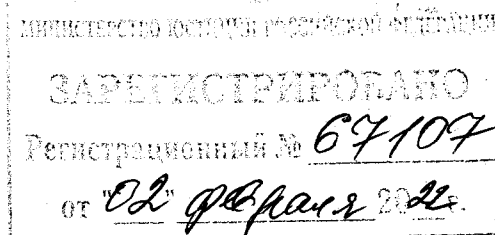 МИНИСТЕРСТВО ЮСТИЦИИ РОССИЙСКОЙ ФЕДЕРАЦИИ
ЗАРЕГИСТРИРОВАНО
Регистрационный № 67107
от "02" февраля 2022г.